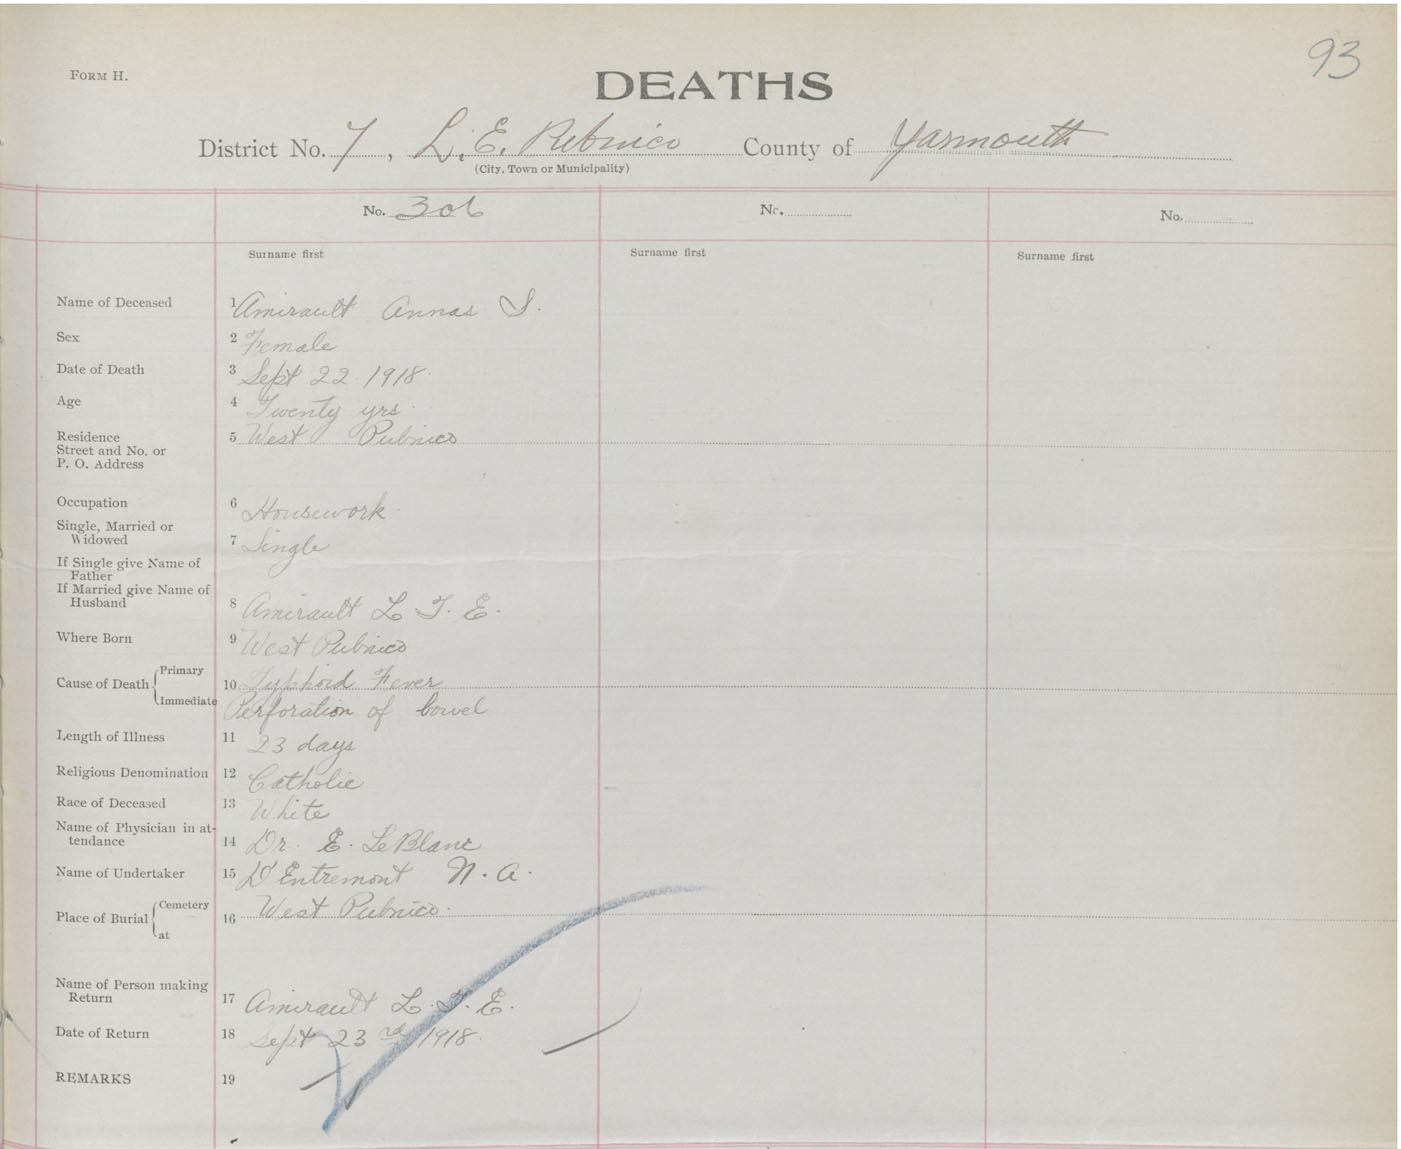 93
FORM H.
DEATHS
District No. 7, L. E. Pubnico County of Yarmouth
(City, Town or Municipality)
No. 306 No. No.
Surname first Surname first Surname first
Name of Deceased 1 Amirault Annas S.
Sex 2 Female
Date of Death 3 Sept 22 1918.
Age 4 Twenty yrs.
Residence 5 West Pubnico
Street and No. or
P. O. Address
Occupation 6 Housework
Single, Married or
Widowed 7 Single
If Single give Name of
Father
If Married give Name of
Husband 8 Amirault L T. E.
Where Born 9 West Pubnico
Cause of Death Primary 10 Typhoid Fever
Immediate Perforation of bowel
Length of Illness 11 23 days
Religious Denomination 12 Catholic
Race of Deceased 13 White
Name of Physician in at-
tendance 14 Dr. E. LeBlanc
Name of Undertaker 15 D'Entremont N. A.
Place of Burial Cemetery 16 West Pubnico.
at
Name of Person making
Return 17 Amirault L. T. E.
Date of Return 18 Sept 23rd 1918.
REMARKS 19